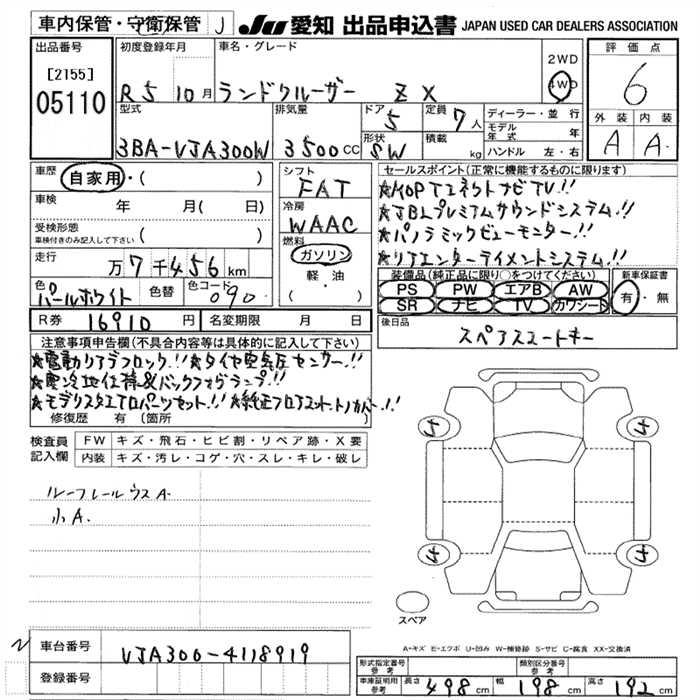 車内保管・守衛保管 J JU 愛知 出品申込書 JAPAN USED CAR DEALERS ASSOCIATION
出品番号 初度登録年月 車名・グレード 評価点
[2155] 2WD
05110 R5 10月 ランドクルーザー ZX 4WD 6
型式 排気量 ドア 5 定員 7人 ディーラー・並行 外装 内装
モデル年式 年
3BA-VJA300W 3500cc 形状 SW 積載 kg ハンドル 左・右 A A
車歴 自家用・( ) シフト FAT セールスポイント(正常に機能するものに限ります)
★MOP Tコネクトナビ TV!!
車検 年 月( 日) 冷房 WAAC ★JBLプレミアムサウンドシステム!!
受検形態 車検付きのみ記入して下さい ( ) 燃料 ガソリン ★パノラミックビューモニター!!
軽・油 ★リアエンターテイメントシステム!!
走行 万7千456km ( ) 装備品(純正品に限り○をつけてください) 新車保証書
色 パールホワイト 色替 色コード 090 PS PW エアB AW 有・無
SR ナビ TV カワシート
R券 16910円 名変期限 月 日 後日品 スペアスマートキー
注意事項申告欄(不具合内容等は具体的に記入して下さい)
★電動リアデフロック!! ★タイヤ空気圧センサー!!
★寒冷地仕様&バックフォグランプ!!
★モデリスタエアロパーツセット!! ★純正フロアマット、トノカバー!!
修復歴 有 〔箇所 〕
検査員記入欄 FW キズ・飛石・ヒビ割・リペア跡・X要
内装 キズ・汚レ・コゲ・穴・スレ・キレ・破レ
ルーフレールウスA.
小A.
スペア
A-キズ E-エクボ U-凹み W-補修跡 S-サビ C-腐食 XX-交換済
車台番号 VJA300-4118919
登録番号
形式指定番号 参考 類別区分番号 参考
車庫証明用 参考 長さ 498cm 幅 198cm 高さ 192cm